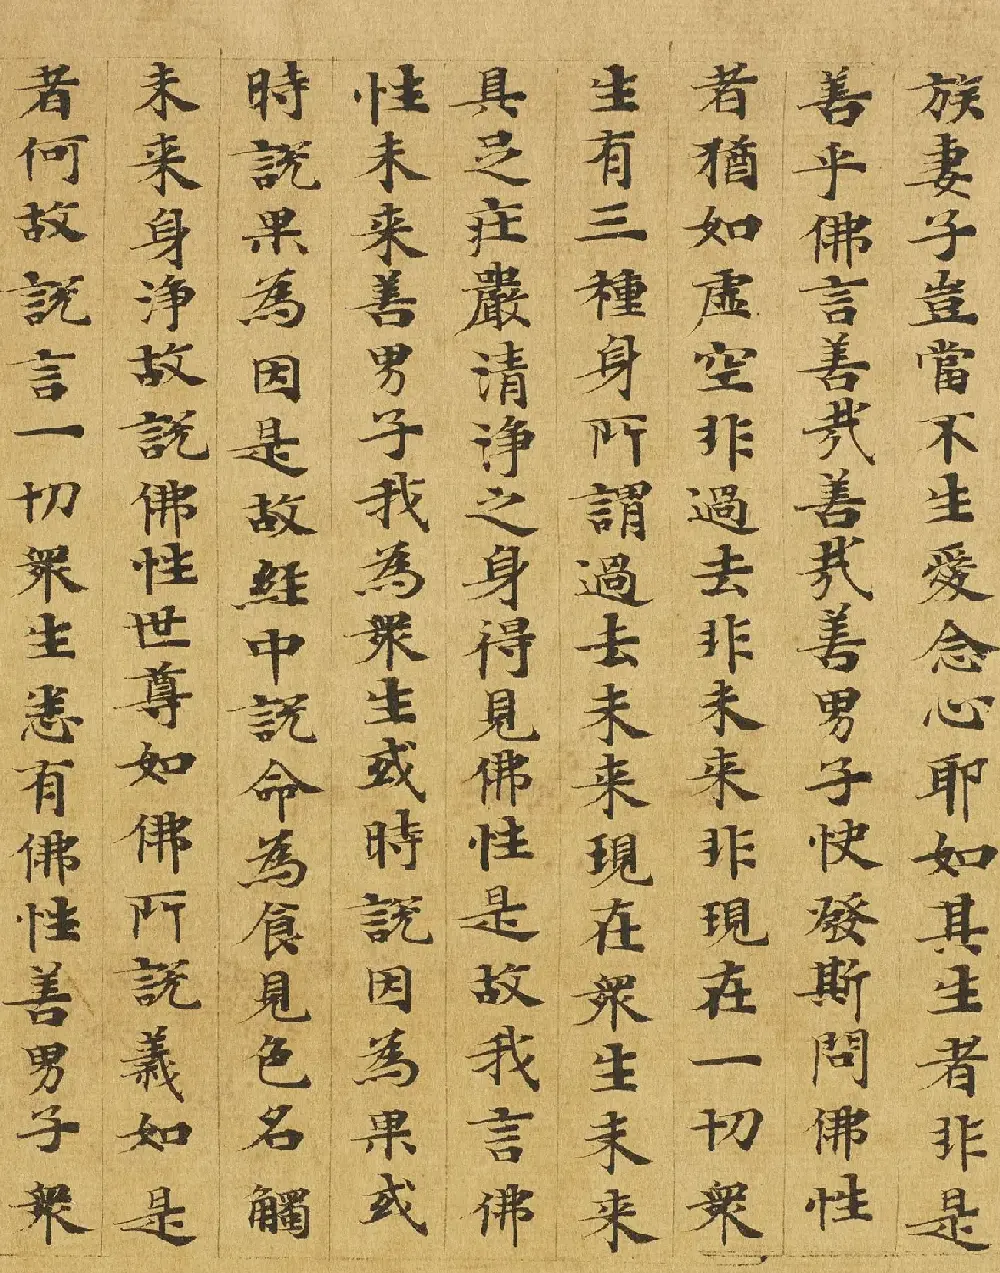 族妻子豈當不生愛念心耶如其生者非是
善乎佛言善㢤善㢤善男子快發斯問佛性
者猶如虛空非過去非未来非現在一切衆
生有三種身所謂過去未来現在衆生未来
具足莊嚴清淨之身得見佛性是故我言佛
性未来善男子我為衆生或時說因為果或
時說果為因是故經中說命為食見色名觸
未来身淨故說佛性世尊如佛所說義如是
者何故說言一切衆生悉有佛性善男子衆